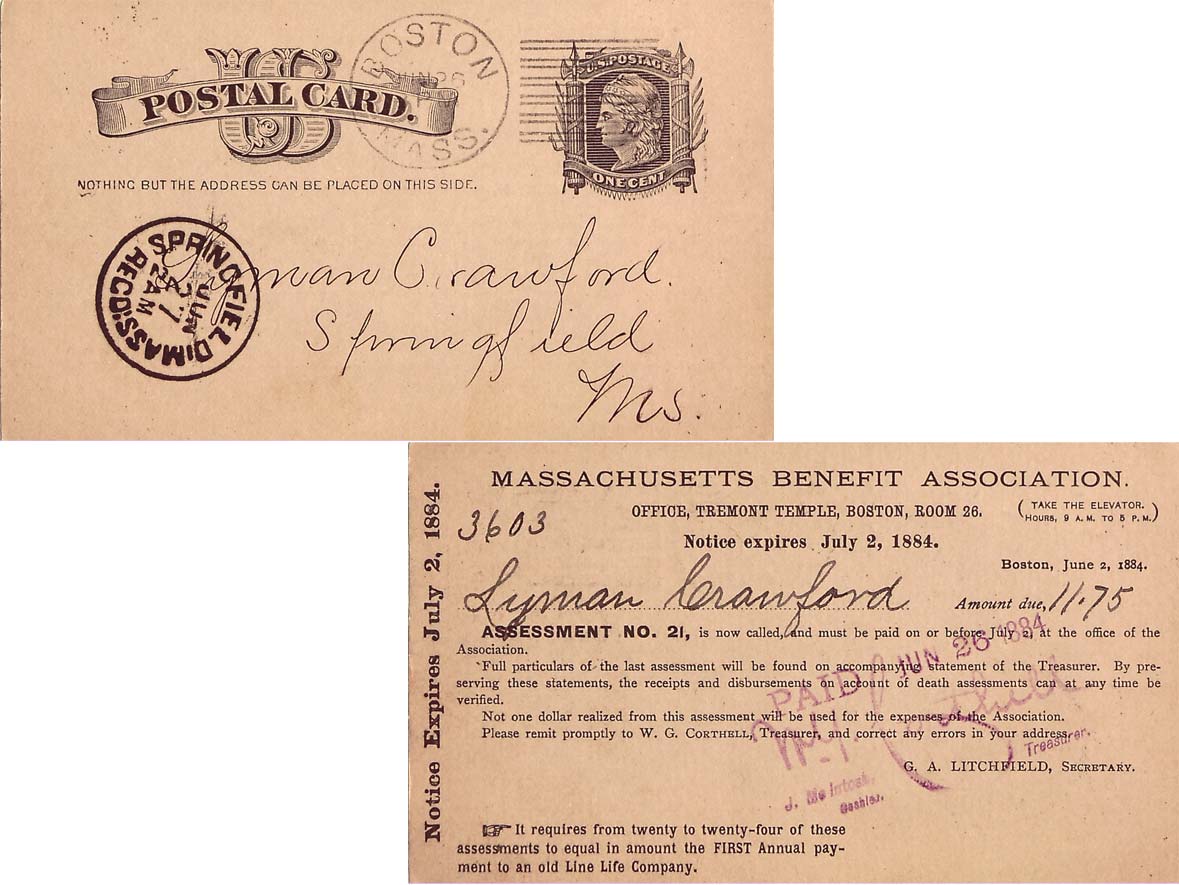 US
POSTAL CARD.
NOTHING BUT THE ADDRESS CAN BE PLACED ON THIS SIDE.
BOSTON
JUN 26
MASS.
U.S. POSTAGE
ONE CENT
SPRINGFIELD, MASS.
JUN
27
2 AM
REC'D.
Lyman Crawford.
Springfield
Ms.
Notice Expires July 2, 1884.
MASSACHUSETTS BENEFIT ASSOCIATION.
3603
OFFICE, TREMONT TEMPLE, BOSTON, ROOM 26.
( TAKE THE ELEVATOR.
HOURS, 9 A. M. TO 5 P. M. )
Notice expires July 2, 1884.
Boston, June 2, 1884.
Lyman Crawford Amount due, 11.75
ASSESSMENT NO. 21, is now called, and must be paid on or before July 2, at the office of the
Association.
Full particulars of the last assessment will be found on accompanying statement of the Treasurer. By pre-
serving these statements, the receipts and disbursements on account of death assessments can at any time be
verified.
Not one dollar realized from this assessment will be used for the expenses of the Association.
Please remit promptly to W. G. CORTHELL, Treasurer, and correct any errors in your address.
G. A. LITCHFIELD, SECRETARY.
PAID JUN 26 1884
W. G. Corthell
Treasurer.
J. McIntosh,
Cashier.
☞ It requires from twenty to twenty-four of these
assessments to equal in amount the FIRST Annual pay-
ment to an old Line Life Company.